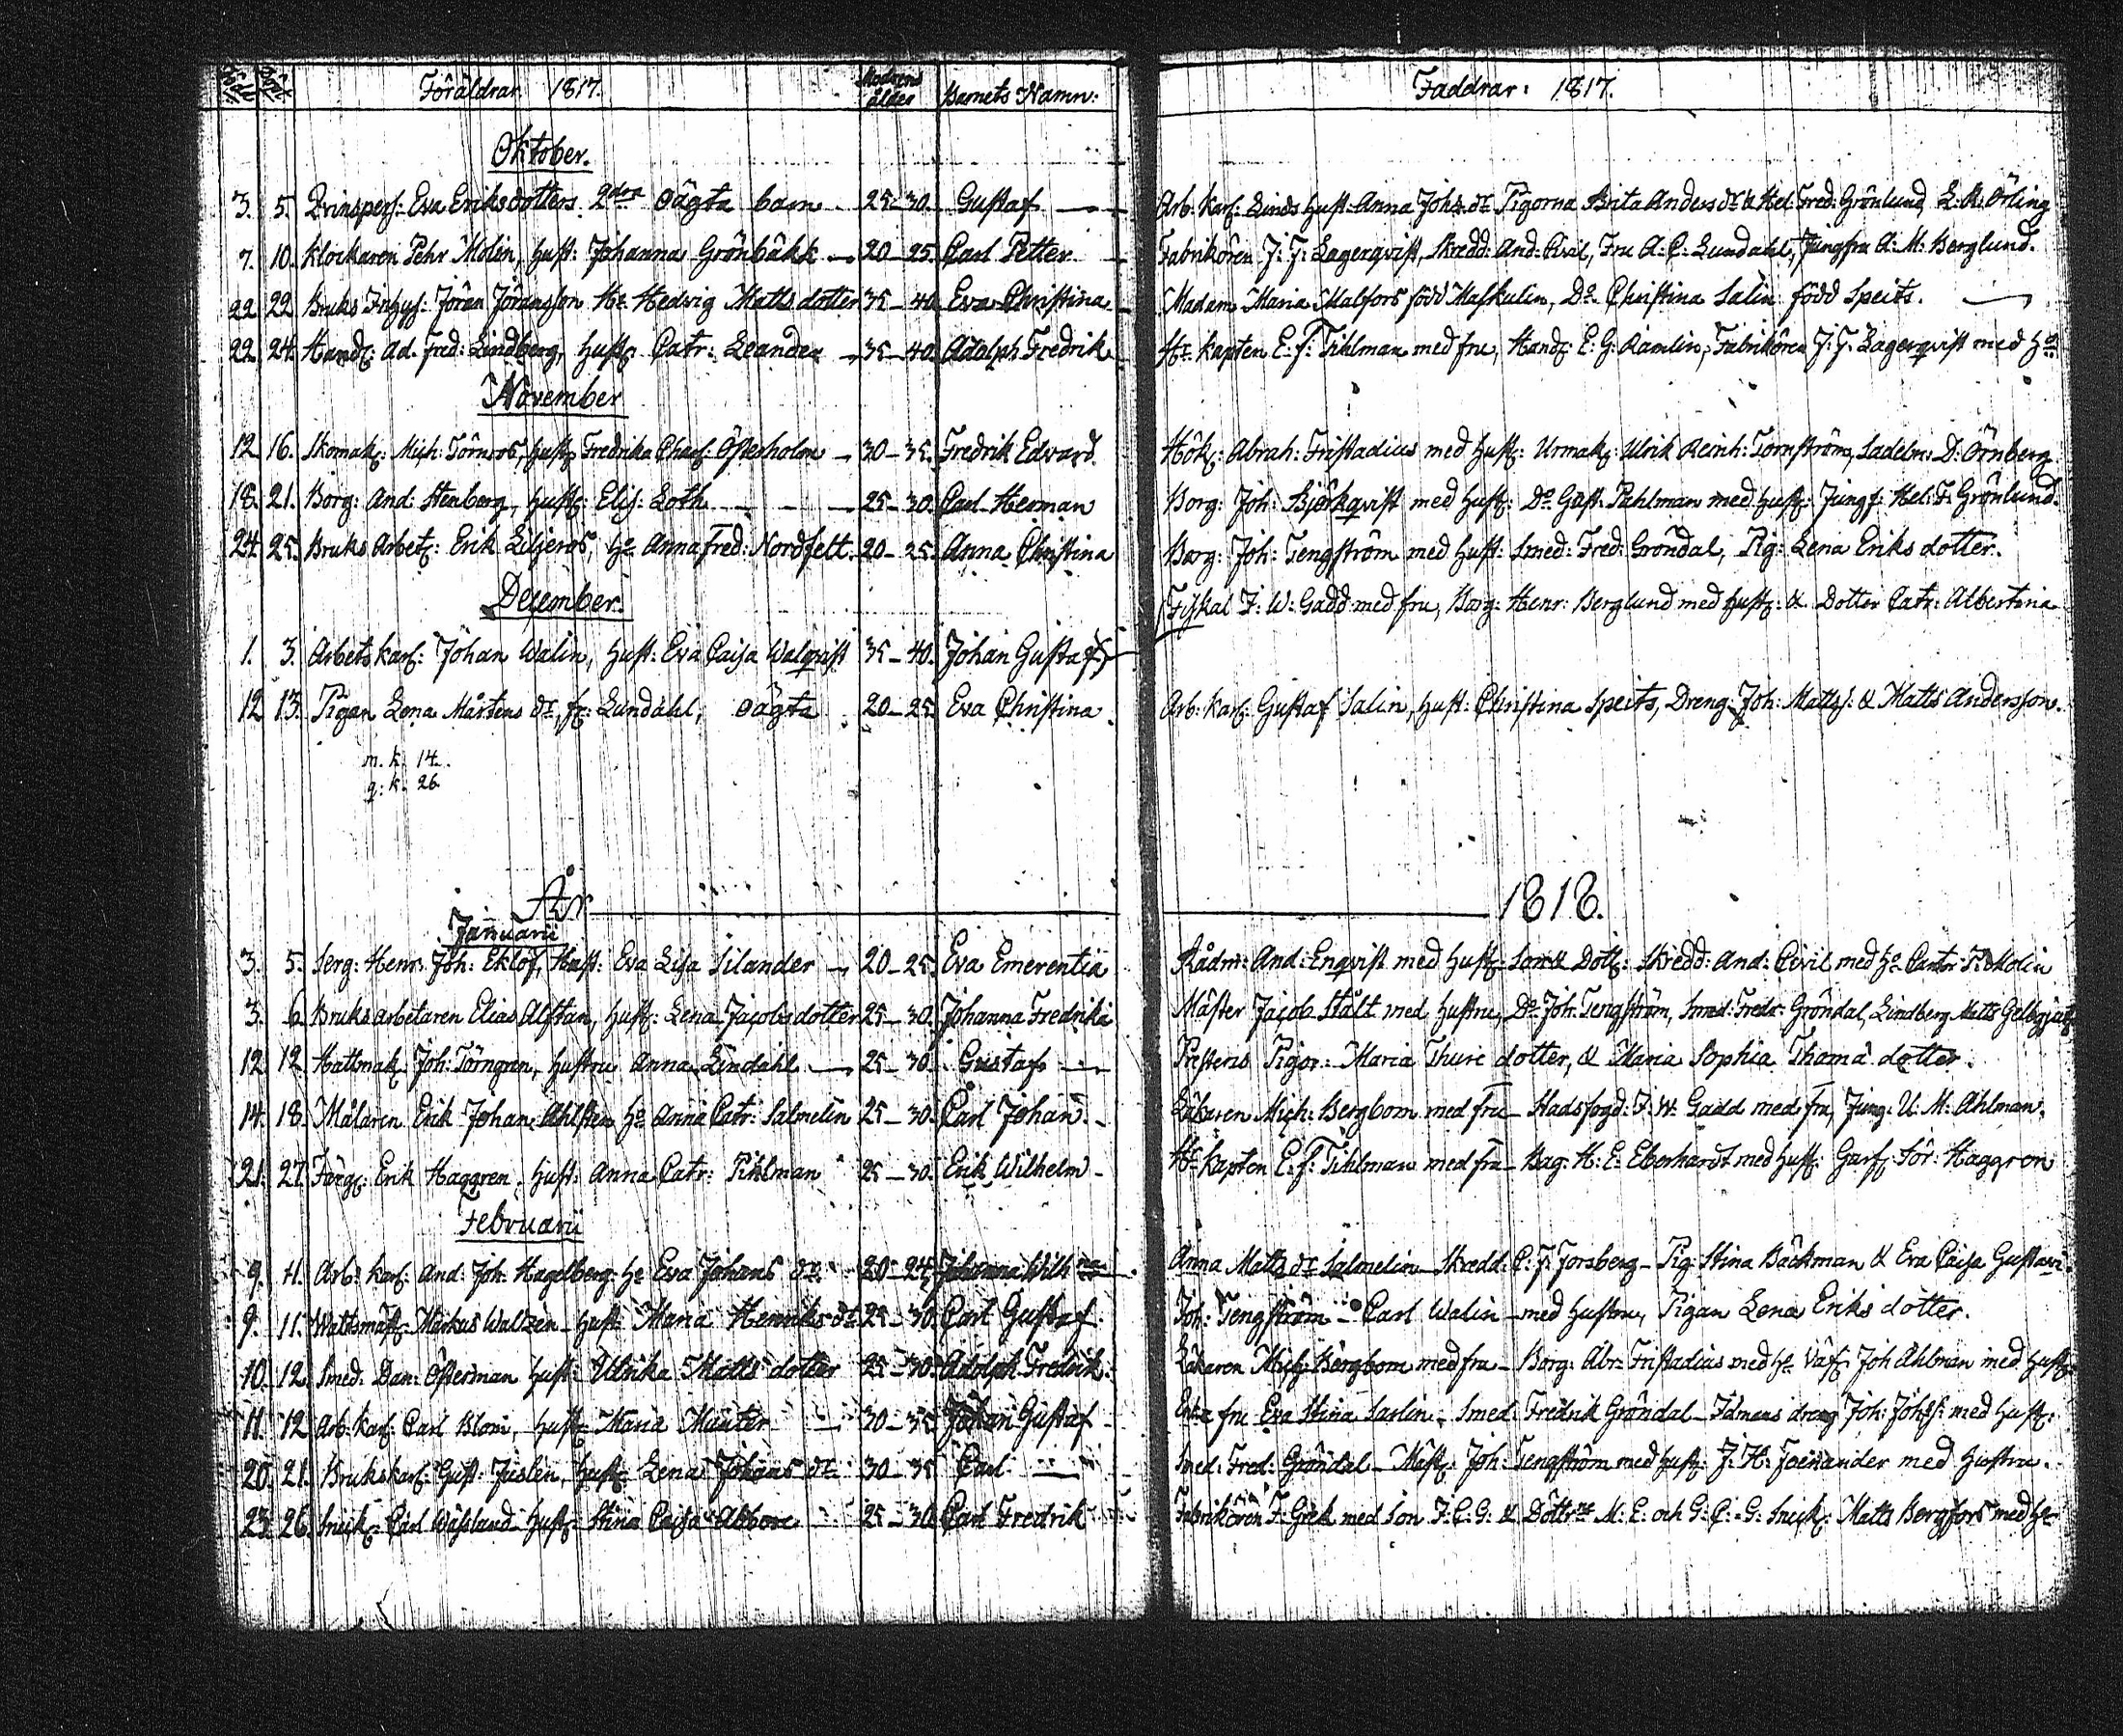 Föräldrar 1817.
Modrens ålder
Barnets Namn:
Oktober.
3. 5. Eva Eriksdotters 2dra oägta barn 25-30. Gustaf
7. 10. Klockaren Pehr Molin, hust: Johanna Grönbäkk 20-25. Carl Petter
22 22 Bruks Jöran Jöransson Hu Hedvig Matts dotter 35-40 Eva Christina
22. 24. Handl: Ad. Fred: Lindberg, hust: Catr: Leander 35-40. Adolph Fredrik
November
12 16. Skomak: Mich: Törnros, hust: Fredrika Charl: Österholm 30-35. Fredrik Edvard.
18. 21. Borg: And: Stenberg, hust: Elis: Loth 25-30. Carl Herman
24. 25. Bruks Arbet: Erik Liljeros, Hu Anna Fred: Nordfelt 20-25. Anna Christina
December.
1. 3. Arbets karl: Johan Walin, hust: Eva Caisa Walqvist 35-40. Johan Gustaf
12 13. Pigan Lena Mårtens dr, Lundahl, oägta 20-25. Eva Christina
m. k. 14.
q: k. 26
År
Januarii
3. 5. Serg: Henr. Joh: Eklöf, Hust: Eva Lisa Silander 20-25. Eva Emerentia
3. 6. Bruks arbetaren Elias Alftan, hust: Lena Jacobs dotter 25-30. Johanna Fredrika
12 12 Hattmak: Joh: Törngren, hustru Anna Lindahl 25-30. Gustaf
14. 18. Målaren Erik Johan Ahlsten Hu Anna Catr: Salmelin 25-30. Carl Johan
21. 27. Färg: Erik Haggren, hust: Anna Catr: Pihlman 25-30. Erik Wilhelm
Februarii
9. 11. Arb: karl: And: Joh: Hagelberg Hu Eva Johans dr. 20-24. Johanna Wilh
9. 11. Markus hust: Maria Henriks dr 25-30. Carl Gustaf
10. 12 Smed: Dan: Österman hust: Ulrika Matts dotter 25-30. Adolph Fredrik.
11. 12 Arb: karl: Carl Blom, hust: Maria Munter 30-35 Johan Gustaf
20. 21. Brukskarl: Gust: Juslen, hust: Lena Johans dr 30-35 Carl
25. 26. Snick: Carl hust: Stina Caisa 25-30. Carl Fredrik
Faddrar: 1817.
Arb: karl: Linds hust: Anna Johs. dr Pigorna Brita Anders dr & Hel: Fred: Grönlund, Örling
Fabrikören J: J: Lagerqvist, Skredd: And: Fru A: C: Lundahl, Jungfru A: M: Berglund.
Madam Maria Malfors född Maskulin, Do Christina Salin född Speits.
Hr Kapten E: J: Tihlman med fru, Handl: E: G: Ramlin, Fabrikören J: J: Lagerqvist med Hu
Hök: Abrah: Fristadius med hust: Urmak: Ulrik Reinh: Tornström, Sadelm: D: Örnberg
Borg: Joh: Björkqvist med hust: Do Gust: Pahlman med hust: Jungf: Hel: F: Grönlund.
Borg: Joh: Tengström med hust: Smed: Fred: Gröndal, Pig: Lena Eriks dotter.
Fiskal F: W: Gadd med fru, Borg: Henr: Berglund med hust: & Dotter Catr: Albertina
Arb: karl: Gustaf Salin, hust: Christina Speits, Dreng: Joh: Matts: & Matts Andersson.
1818.
Rådm: And: Enqvist med hust: Son & Dott: Skredd: And: med Hu Cantor P: Molin
Mäster Jacob Stålt med hustru, Do Joh: Tengström, Smed: Fredr: Gröndal, Lindberg Matts
Prestens Pigor: Maria Thure dotter, & Maria Sophia Thoma dotter.
Läkaren Mich: Bergbom med fru Stadsfogd: F: W: Gadd med fru, Jung: U: M: Ahlman.
Hr Kapten E: J: Tihlman med fru Bag: H: E: Eberhardt med hust: Garf: Haggren
Anna Matts dr Salmelin Skredd: C: F: Forsberg Pig: Stina Bäckman & Eva Caisa
Joh: Tengström Carl Walin med hustru, Pigan Lena Eriks dotter.
Läkaren Mich: Bergbom med fru Borg: Abr: Fristadius med Hu Joh Ahlman med hust:
fru Eva Stina Sarlin Smed Fredrik Gröndal dreng Joh: Johs: med hust:
Smed: Fred: Gröndal Mäst: Joh: Tengström med hust: J: H: med hustru.
Fabrikören F: Grek med Son F: C: G: & M: E: och G: C: G: Snick: Matts Bergfors med Hu